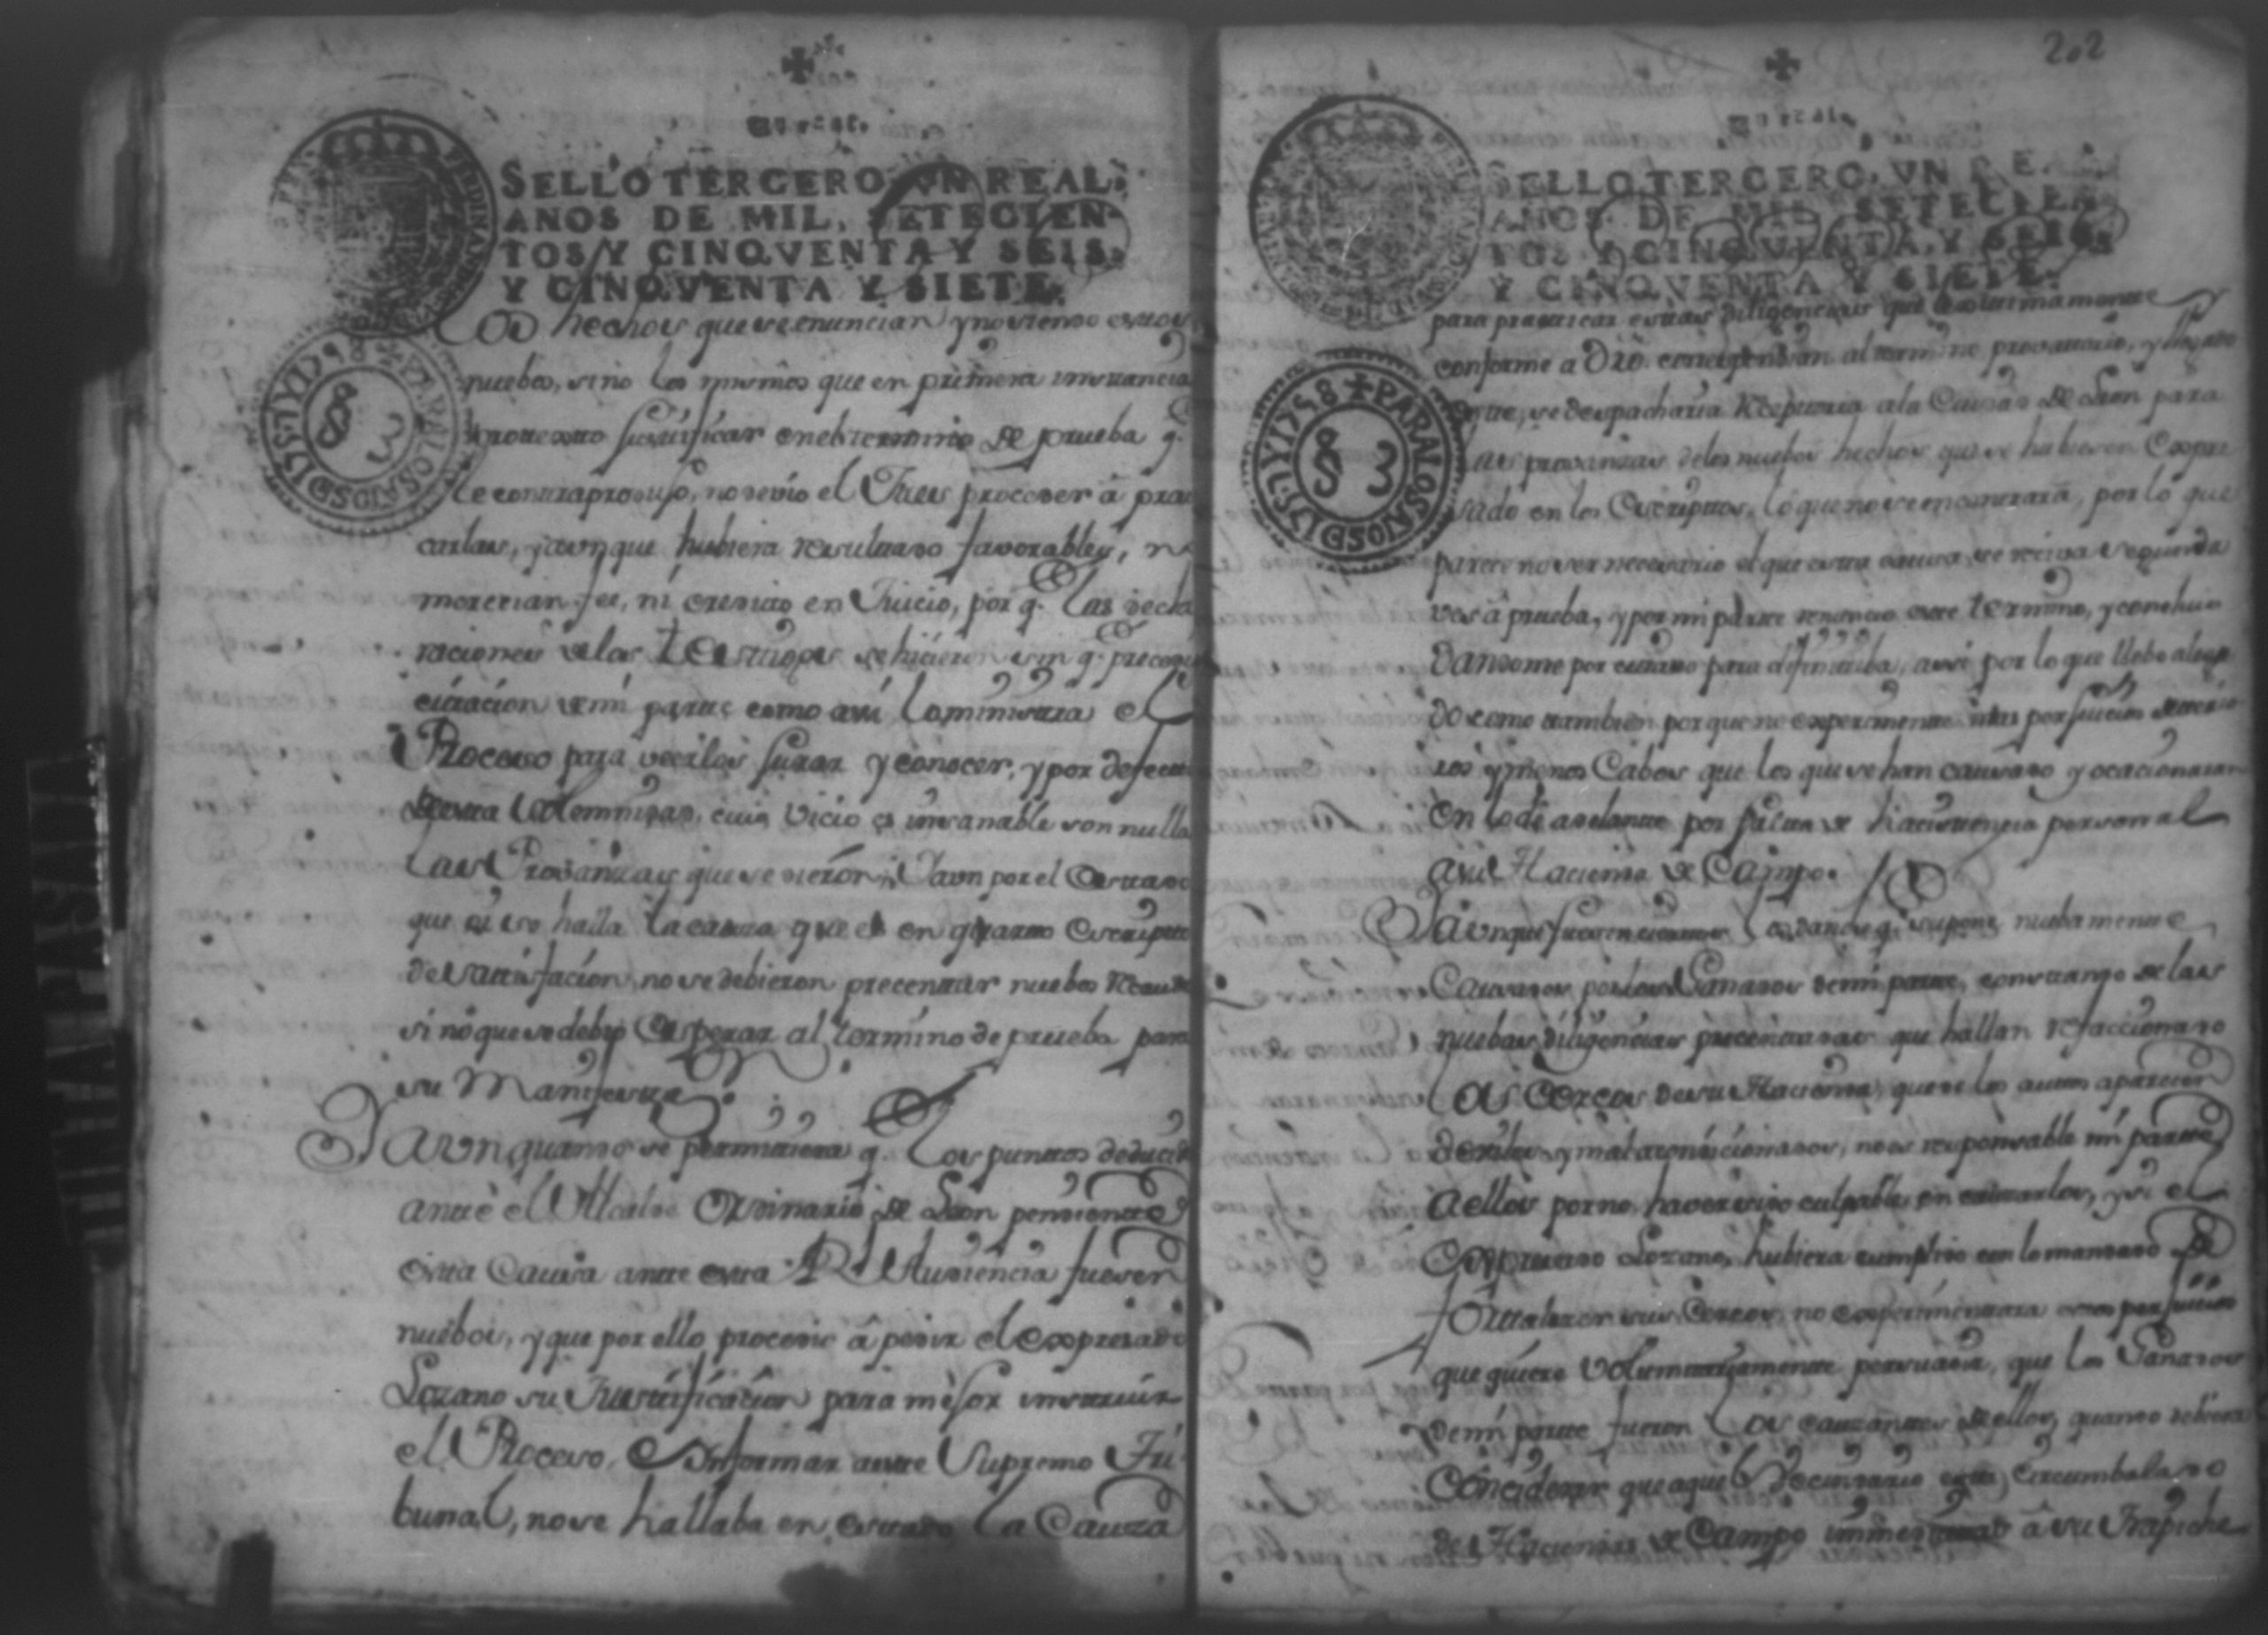 SELLO TERCERO, VN REAL,
AÑOS DE MIL, SETECIEN-
TOS Y CINQVENTA Y SEIS,
Y CINQVENTA Y SIETE.
PARA LOS AÑOS DE 1757 Y 1758
S 3
Los hechos que se enuncian y no siendo estos
nuebos, sino los mismos que en primera instancia
protexto justificar en el termino de prueba q.
le contrapropuso, no devio el Juez proceder â prac
carlas, y aunque hubiera resultado favorables, n
merecian fee, ni credito en Juicio, por q. las decla
raciones de los testigos se hicieron sin q. preced
citacion de mi parte como assi lo ministra el
Proceso para verlos jurar y conocer, y por defecto
de esta solemnidad, cuio vicio es insanable son nulla
las Provanzas que se dieron; Y aun por el estado
que oi se halla la causa que es en quarto escripto
de satisfacion, no se debieron precentar nuebos recaudo
sino que se debio esperar al termino de prueba para
su Manifesta
Y aun quando se permitiera q. los puntos deducid
ante el Alcalde Ordinario de Leon pendiente
esta Causa ante esta Rl Audiencia fuesen
nuebos, y que por ello procedio â pedir el expresado
Lozano su Justificacion para mejor instruir
el Proceso, e informar a este Supremo Tri
bunal, no se hallaba en estado la Cauza
202
SELLO TERCERO, VN RE
AÑOS DE MIL SETECIEN
TOS Y CINQVENTA, Y SEIS,
Y CINQVENTA Y SIETE.
PARA LOS AÑOS DE 1757 Y 1758
S 3
para practicar estas diligencias que
conforme a dro. correspondian al termino provatorio, y llegado
este, se despacharia Receptoria a la Ciudad de Leon para
las provanzas de los nuebos hechos que se hubiesen expre
sado en los escriptos, lo que no se encontrara, por lo que
parece no ser necesario el que esta causa se reciva segunda
ves â prueba, y por mi parte renuncio este termino, y conclui
dandome por citado para difinitiba, assi por lo que llebo alega
do como tambien por que no experimente mas perjuicios
y menos Cabos que los que se han causado y ocacionaran
en lo de adelante por falta de hacistencia personal
a su Hacienda de Campo.
Y aunque fuesen ciertos los daños q. supone nuebamente
Causados por los Ganados de mi parte, constando de las
nuebas diligencias precentadas que hallan refaccionado
las Cercas de su Hacienda, que de los autos aparecen
devilis y mal acondicionados, no es responsable mi parte
a ellos por no haver sido culpable en causarlos, y si el
expresado Lozano, hubiera cumplido con lo mandado de
fortalezer sus Cercos, no experimentara esos perjuicios
que quiere voluntariamente persuadir, que los Ganados
de mi parte fueron los causantes de ellos, quando debiera
conciderar que aquel Vecindario esta Circumbalado
de Haciendas de Campo immediatas â su Trapiche